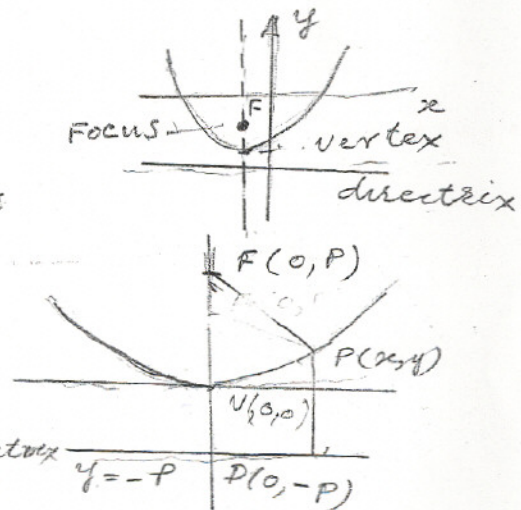 y
F
x
Focus
vertex
directrix
F(0, P)
P(x,y)
V(0,0)
y = -P D(0, -P)